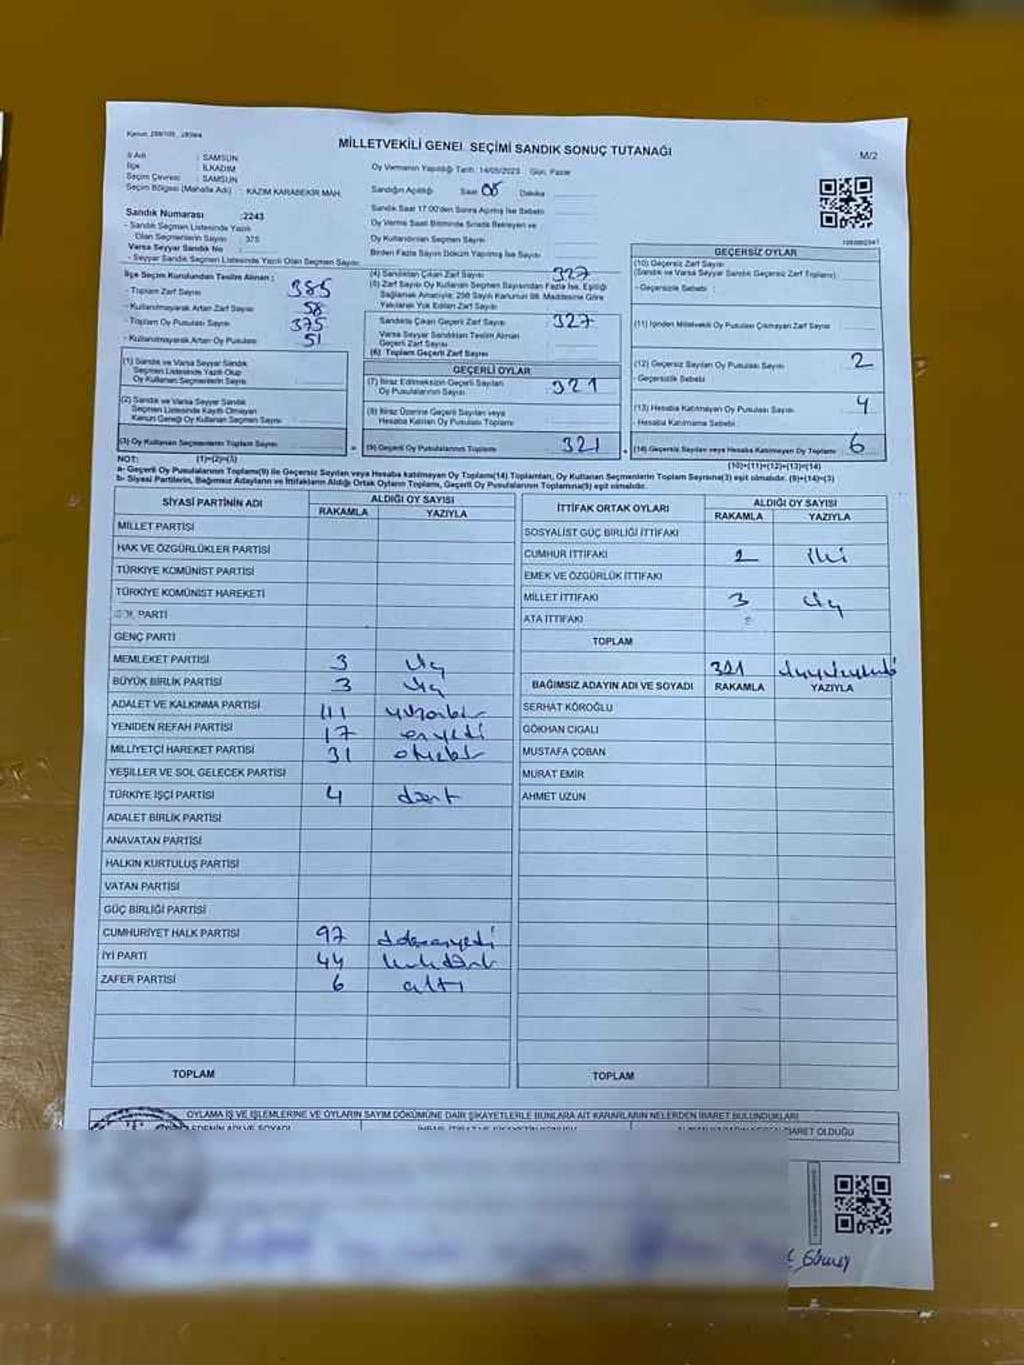 Kanun: 298/105, 2839/4
MİLLETVEKİLİ GENEL SEÇİMİ SANDIK SONUÇ TUTANAĞI
M/2
İl Adı : SAMSUN
İlçe : İLKADIM
Seçim Çevresi : SAMSUN
Seçim Bölgesi (Mahalle Adı) : KAZIM KARABEKİR MAH.
Oy Vermenin Yapıldığı Tarih : 14/05/2023 Gün: Pazar
Sandığın Açıldığı Saat 08 Dakika :
Sandık Saat 17.00'den Sonra Açılmış İse Sebebi :
Oy Verme Saati Bitiminde Sırada Bekleyen ve
Oy Kullandırılan Seçmen Sayısı
Birden Fazla Sayım Döküm Yapılmış İse Sayısı :
Sandık Numarası :2243
- Sandık Seçmen Listesinde Yazılı
Olan Seçmenlerin Sayısı : 375
Varsa Seyyar Sandık No :
- Seyyar Sandık Seçmen Listesinde Yazılı Olan Seçmen Sayısı:
İlçe Seçim Kurulundan Teslim Alınan :
- Toplam Zarf Sayısı : 385
- Kullanılmayarak Artan Zarf Sayısı : 58
- Toplam Oy Pusulası Sayısı : 375
- Kullanılmayarak Artan Oy Pusulası : 51
(1) Sandık ve Varsa Seyyar Sandık
Seçmen Listesinde Yazılı Olup
Oy Kullanan Seçmenlerin Sayısı :
(2) Sandık ve Varsa Seyyar Sandık
Seçmen Listesinde Kayıtlı Olmayan
Kanun Gereği Oy Kullanan Seçmen Sayısı :
(3) Oy Kullanan Seçmenlerin Toplam Sayısı
(4) Sandıktan Çıkan Zarf Sayısı : 327
(5) Zarf Sayısı Oy Kullanan Seçmen Sayısından Fazla İse, Eşitliği
Sağlamak Amacıyla; 298 Sayılı Kanunun 98. Maddesine Göre
Yakılarak Yok Edilen Zarf Sayısı
Sandıkta Çıkan Geçerli Zarf Sayısı : 327
Varsa Seyyar Sandıktan Teslim Alınan
Geçerli Zarf Sayısı
(6) Toplam Geçerli Zarf Sayısı
GEÇERLİ OYLAR
(7) İtiraz Edilmeksizin Geçerli Sayılan
Oy Pusulalarının Sayısı : 321
(8) İtiraz Üzerine Geçerli Sayılan veya
Hesaba Katılan Oy Pusulası Toplamı :
= (9) Geçerli Oy Pusulalarının Toplamı 321
GEÇERSİZ OYLAR
(10) Geçersiz Zarf Sayısı
(Sandık ve Varsa Seyyar Sandık Geçersiz Zarf Toplamı)
- Geçersizlik Sebebi :
(11) İçinden Milletvekili Oy Pusulası Çıkmayan Zarf Sayısı :
(12) Geçersiz Sayılan Oy Pusulası Sayısı : 2
- Geçersizlik Sebebi
(13) Hesaba Katılmayan Oy Pusulası Sayısı : 4
- Hesaba Katılmama Sebebi :
+ (14) Geçersiz Sayılan veya Hesaba Katılmayan Oy Toplamı 6
NOT: (1)+(2)=(3)
(10)+(11)+(12)+(13)=(14)
a- Geçerli Oy Pusulalarının Toplamı(9) ile Geçersiz Sayılan veya Hesaba katılmayan Oy Toplamı(14) Toplamları, Oy Kullanan Seçmenlerin Toplam Sayısına(3) eşit olmalıdır. (9)+(14)=(3)
b- Siyasi Partilerin, Bağımsız Adayların ve İttifakların Aldığı Ortak Oyların Toplamı, Geçerli Oy Pusulalarının Toplamına(9) eşit olmalıdır.
SİYASİ PARTİNİN ADI
ALDIĞI OY SAYISI
RAKAMLA YAZIYLA
MİLLET PARTİSİ
HAK VE ÖZGÜRLÜKLER PARTİSİ
TÜRKİYE KOMÜNİST PARTİSİ
TÜRKİYE KOMÜNİST HAREKETİ
SOL PARTİ
GENÇ PARTİ
MEMLEKET PARTİSİ 3 üç
BÜYÜK BİRLİK PARTİSİ 3 üç
ADALET VE KALKINMA PARTİSİ 111 yüzonbir
YENİDEN REFAH PARTİSİ 17 onyedi
MİLLİYETÇİ HAREKET PARTİSİ 31 otuzbir
YEŞİLLER VE SOL GELECEK PARTİSİ
TÜRKİYE İŞÇİ PARTİSİ 4 dört
ADALET BİRLİK PARTİSİ
ANAVATAN PARTİSİ
HALKIN KURTULUŞ PARTİSİ
VATAN PARTİSİ
GÜÇ BİRLİĞİ PARTİSİ
CUMHURİYET HALK PARTİSİ 97 doksanyedi
İYİ PARTİ 44 kırkdört
ZAFER PARTİSİ 6 altı
TOPLAM
İTTİFAK ORTAK OYLARI
ALDIĞI OY SAYISI
RAKAMLA YAZIYLA
SOSYALİST GÜÇ BİRLİĞİ İTTİFAKI
CUMHUR İTTİFAKI 2 iki
EMEK VE ÖZGÜRLÜK İTTİFAKI
MİLLET İTTİFAKI 3 üç
ATA İTTİFAKI
TOPLAM
321
BAĞIMSIZ ADAYIN ADI VE SOYADI RAKAMLA YAZIYLA
SERHAT KÖROĞLU
GÖKHAN CIGALI
MUSTAFA ÇOBAN
MURAT EMİR
AHMET UZUN
TOPLAM
OYLAMA İŞ VE İŞLEMLERİNE VE OYLARIN SAYIM DÖKÜMÜNE DAİR ŞİKAYETLERLE BUNLARA AİT KARARLARIN NELERDEN İBARET BULUNDUKLARI
EDENİN ADI VE SOYADI
İBARET OLDUĞU